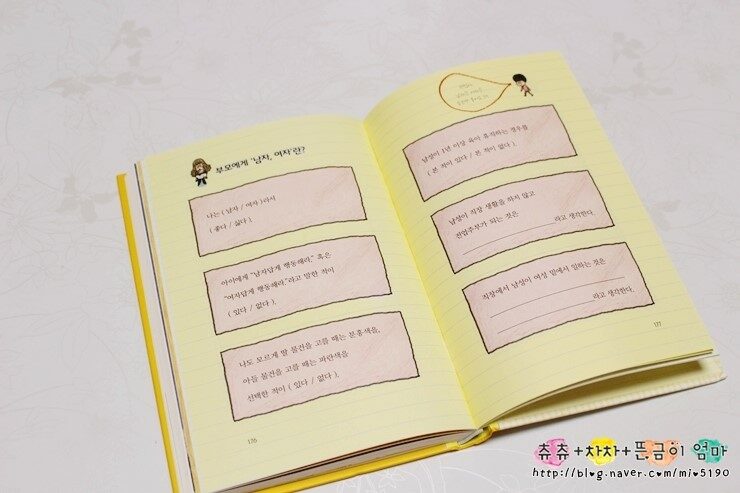 부모에게 '남자, 여자'란?
나는 ( 남자 / 여자 )라서
( 좋다 / 싫다 ).
아이에게 "남자답게 행동해라." 혹은
"여자답게 행동해라."라고 말한 적이
( 있다 / 없다 ).
나도 모르게 딸 물건을 고를 때는 분홍색을,
아들 물건을 고를 때는 파란색을
선택한 적이 ( 있다 / 없다 ).
126
남성이 1년 이상 육아 휴직하는 경우를
( 본 적이 있다 / 본 적이 없다 ).
남성이 직장 생활을 하지 않고
전업주부가 되는 것은
라고 생각한다.
직장에서 남성이 여성 밑에서 일하는 것은
라고 생각한다.
127
츄츄+차차+뜬금이 엄마
http://blog.naver.com/mi05190